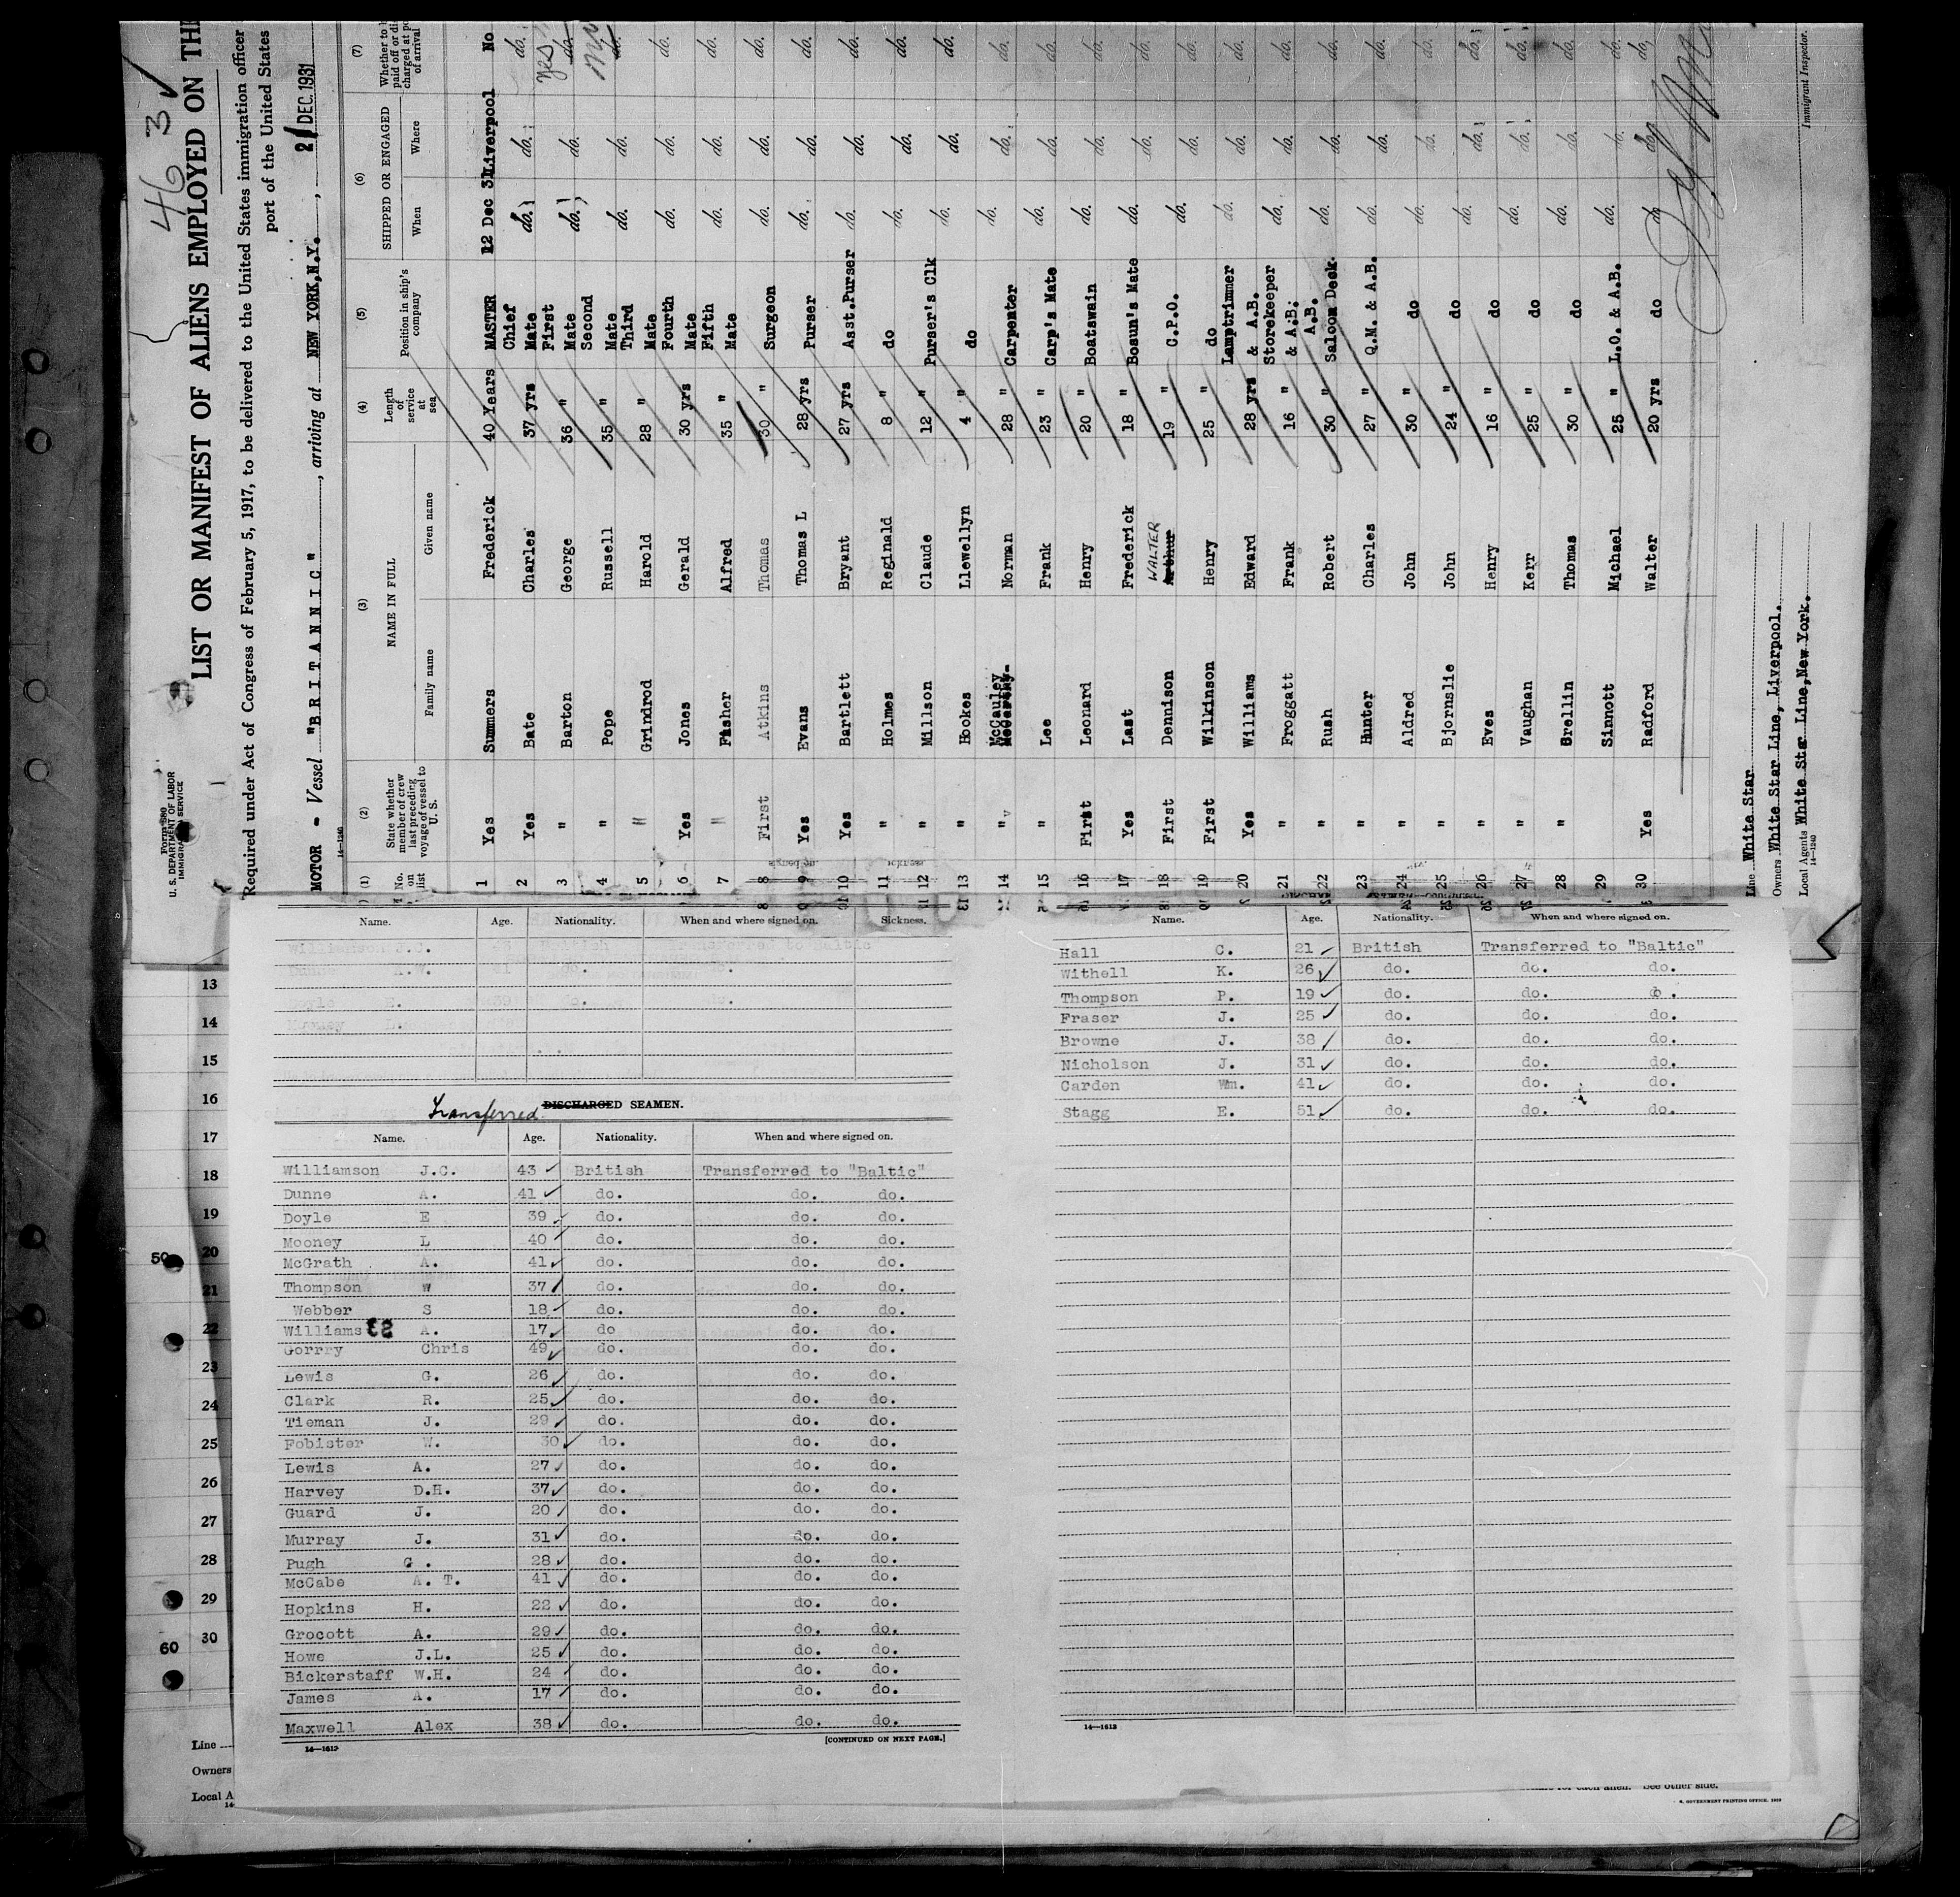 46 3
Form 680
U. S. DEPARTMENT OF LABOR
IMMIGRATION SERVICE
LIST OR MANIFEST OF ALIENS EMPLOYED ON TH
Required under Act of Congress of February 5, 1917, to be delivered to the United States immigration officer
port of the United States
MOTOR - Vessel "BRITANNIC", arriving at NEW YORK,N.Y., 21 DEC. 1931
14-1240
(1) (2) (3) (4) (5) (6) (7)
No. on list
State whether member of crew last preceding voyage of vessel to U. S.
NAME IN FULL
Family name Given name
Length of service at sea
Position in ship's company
SHIPPED OR ENGAGED
When Where
Whether to paid off or charged at of arrival
1 Yes Summers Frederick 40 Years MASTER 12 Dec 31 Liverpool No
2 Yes Bate Charles 37 yrs Chief Mate do. do. do.
3 " Barton George 36 " First Mate do. do. do. Yes
4 " Pope Russell 35 " Second Mate do. do. do.
5 " Grindrod Harold 28 " Third Mate do. do. do.
6 Yes Jones Gerald 30 yrs Fourth Mate do. do. do.
7 " Fisher Alfred 35 " Fifth Mate do. do. do.
8 First Atkins Thomas 30 " Surgeon do. do. do.
9 Yes Evans Thomas L 28 yrs Purser do. do. do.
10 Yes Bartlett Bryant 27 yrs Asst.Purser do. do. do.
11 " Holmes Reginald 8 " do do. do. do.
12 " Millson Claude 12 " Purser's Clk do. do. do.
13 " Hookes Llewellyn 4 " do do. do. do.
14 " McCauley McCarthy Norman 28 " Carpenter do. do. do.
15 " Lee Frank 23 " Carp's Mate do. do. do.
16 First Leonard Henry 20 " Boatswain do. do. do.
17 Yes Last Frederick 18 " Bosun's Mate do. do. do.
18 First Dennison WALTER Arthur 19 " C.P.O. do. do. do.
19 First Wilkinson Henry 25 " do do. do. do.
20 Yes Williams Edward 28 yrs Lamptrimmer & A.B. do. do. do.
21 " Froggatt Frank 16 " Storekeeper & A.B. do. do. do.
22 " Rush Robert 30 " A.B. Saloon Deck. do. do. do.
23 " Hunter Charles 27 " Q.M. & A.B. do. do. do.
24 " Aldred John 30 " do do. do. do.
25 " Bjornslie John 24 " do do. do. do.
26 " Eves Henry 16 " do do. do. do.
27 " Vaughan Kerr 25 " do do. do. do.
28 " Brellin Thomas 30 " do do. do. do.
29 Sinnott Michael 25 " L.O. & A.B. do. do. do.
30 Yes Radford Walter 20 yrs do do do. do.
Line White Star
Owners White Star Line, Liverpool.
Local Agents White Star Line,New York.
14-1240
Immigrant Inspector.
Name. Age. Nationality. When and where signed on. Sickness.
Transferred
DISCHARGED SEAMEN.
Name. Age. Nationality. When and where signed on.
Williamson J.C. 43 British Transferred to "Baltic"
Dunne A. 41 do. do. do.
Doyle E 39 do. do. do.
Mooney L 40 do. do. do.
McGrath A. 41 do. do. do.
Thompson W 37 do. do. do.
Webber S 18 do. do. do.
Williams A. 17 do do. do.
Gorrry Chris 49 do. do. do.
Lewis G. 26 do. do. do.
Clark R. 25 do. do. do.
Tieman J. 29 do. do. do.
Fobister W. 30 do. do. do.
Lewis A. 27 do. do. do.
Harvey D.H. 37 do. do. do.
Guard J. 20 do. do. do.
Murray J. 31 do. do. do.
Pugh G. 28 do. do. do.
McCabe A. T. 41 do. do. do.
Hopkins H. 22 do. do. do.
Grocott A. 29 do. do. do.
Howe J.L. 25 do. do. do.
Bickerstaff W.H. 24 do. do. do.
James A. 17 do. do. do.
Maxwell Alex 38 do. do. do.
14-1613
[CONTINUED ON NEXT PAGE.]
Name. Age. Nationality. When and where signed on.
Hall C. 21 British Transferred to "Baltic"
Withell K. 26 do. do. do.
Thompson P. 19 do. do. do.
Fraser J. 25 do. do. do.
Browne J. 38 do. do. do.
Nicholson J. 31 do. do. do.
Carden Wm. 41 do. do. do.
Stagg E. 51 do. do. do.
14-1613
13
14
15
16
17
18
19
50 20
21
22
23
24
25
26
27
28
29
60 30
Line
Owners
Local A
14
for each alien. See other side.
GOVERNMENT PRINTING OFFICE